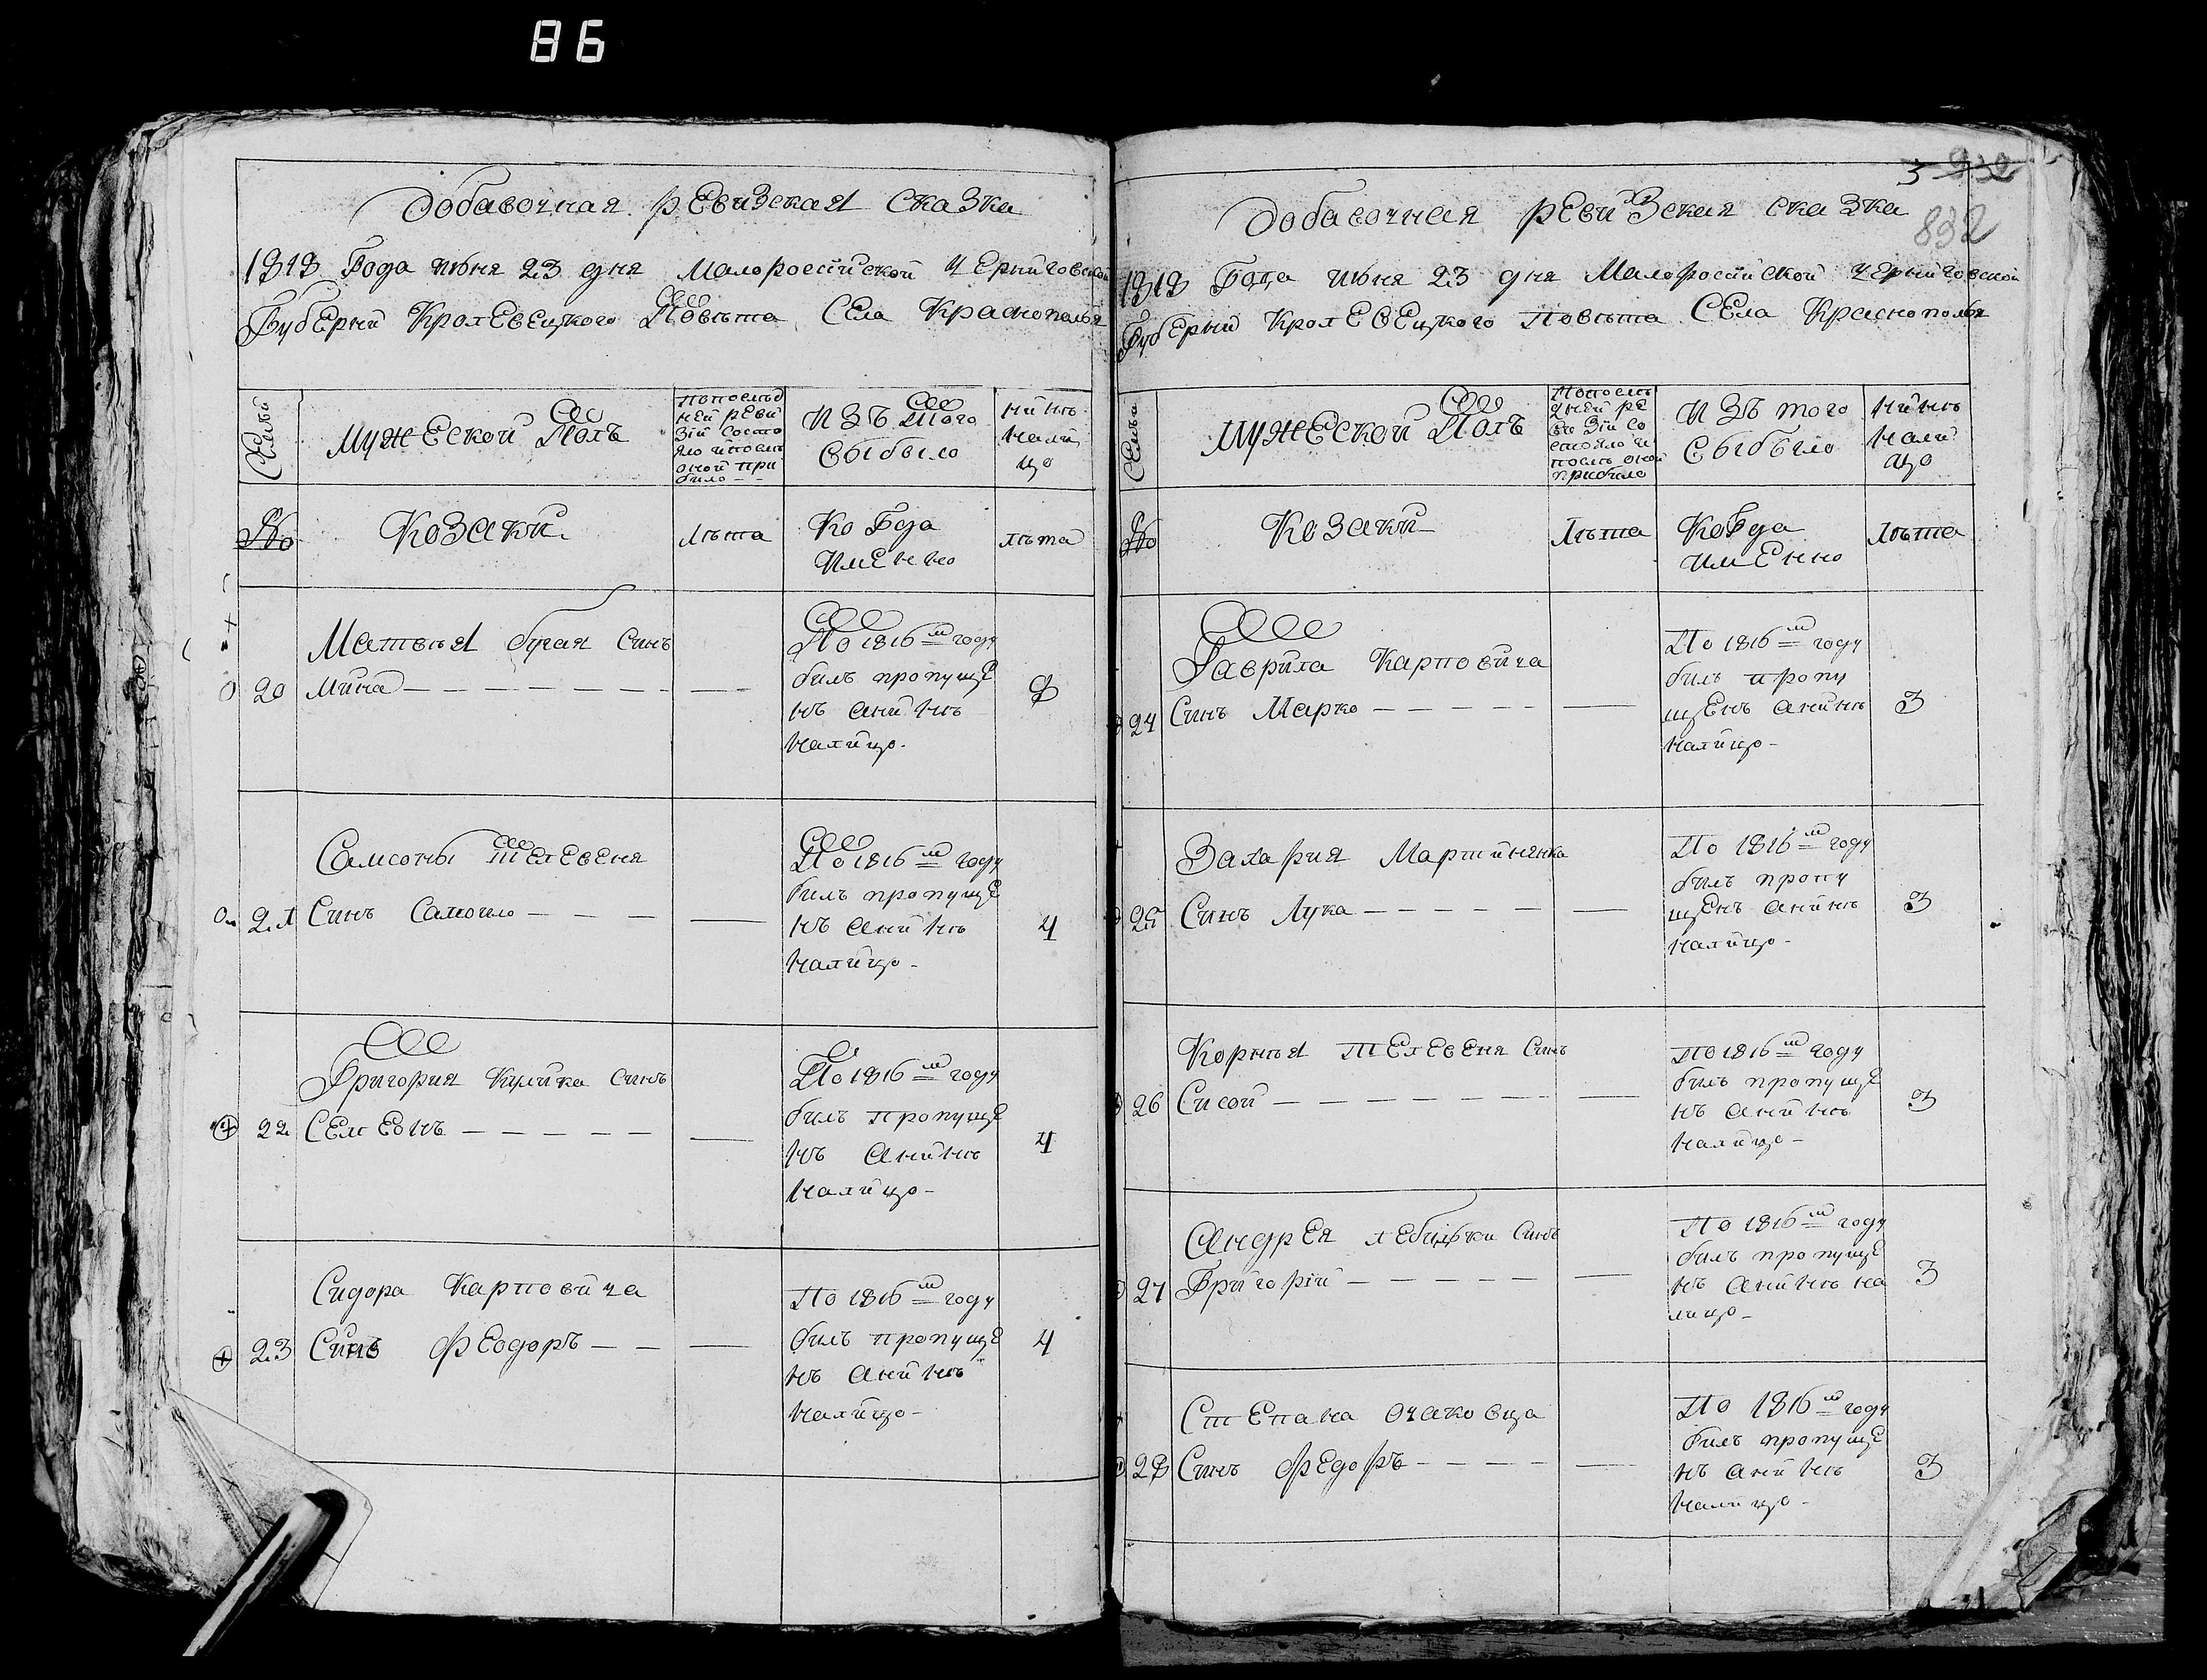 86
Добавочная ревизская сказка
1818 Года июня 23 дня Малороссійской Черниговской
Губерніи Кролевецкого Повѣта Села Краснополья
Семьи
Мужеской Полъ
попослѣд
ней реви
зіи состо
яло ипослѣ
оной при
било
Изъ того
выбыло
нинѣ
Нали
цо
№
Козаки
лѣта
Когда
Именно
лѣта
Матвѣя бугая Синъ
20 Мина
По 1816м году
билъ пропуще
нъ анинѣ
налицо.
8
Самсоны телевеня
21 Синъ Самоило
По 1816м году
билъ пропуще
нъ анинѣ
налицо
4
Григория Кулика синъ
22 Семеонъ
По 1816м году
билъ пропуще
нъ анинѣ
налицо
4
Сидора Карповича
23 Синъ Феодоръ
По 1816м году
билъ пропуще
нъ анинѣ
налицо
4
3
832
Добавочная ревизская сказка
1818 Года июня 23 дня Малоросийской Черниговской
Губерніи Кролевецкого Повѣта Села Краснополья
Семья
Мужеской Полъ
Попослѣ
дней ре
визіи со
стояло и
послѣ оной
прибило
Изъ того
выбыло
нинѣ
Нали
цо
№
Козаки
Лѣта
Когда
именно
Лѣта
Гаврила Карповича
24 Синъ Марко
По 1816м году
билъ пропу
щенъ анинѣ
налицо
3
Захария Мартиненка
25 Синъ Лука
По 1816м году
билъ пропу
щенъ анинѣ
налицо
3
Корнѣя телевеня Синъ
26 Сисой
По 1816м году
билъ пропуще
нъ анинѣ
налицо
3
Андрея Синъ
27 Григорій
По 1816м году
билъ пропуще
нъ анинѣ на
лицо
3
Степана Очаковца
28 Синъ Федоръ
По 1816м году
билъ пропуще
нъ анинѣ
налицо
3